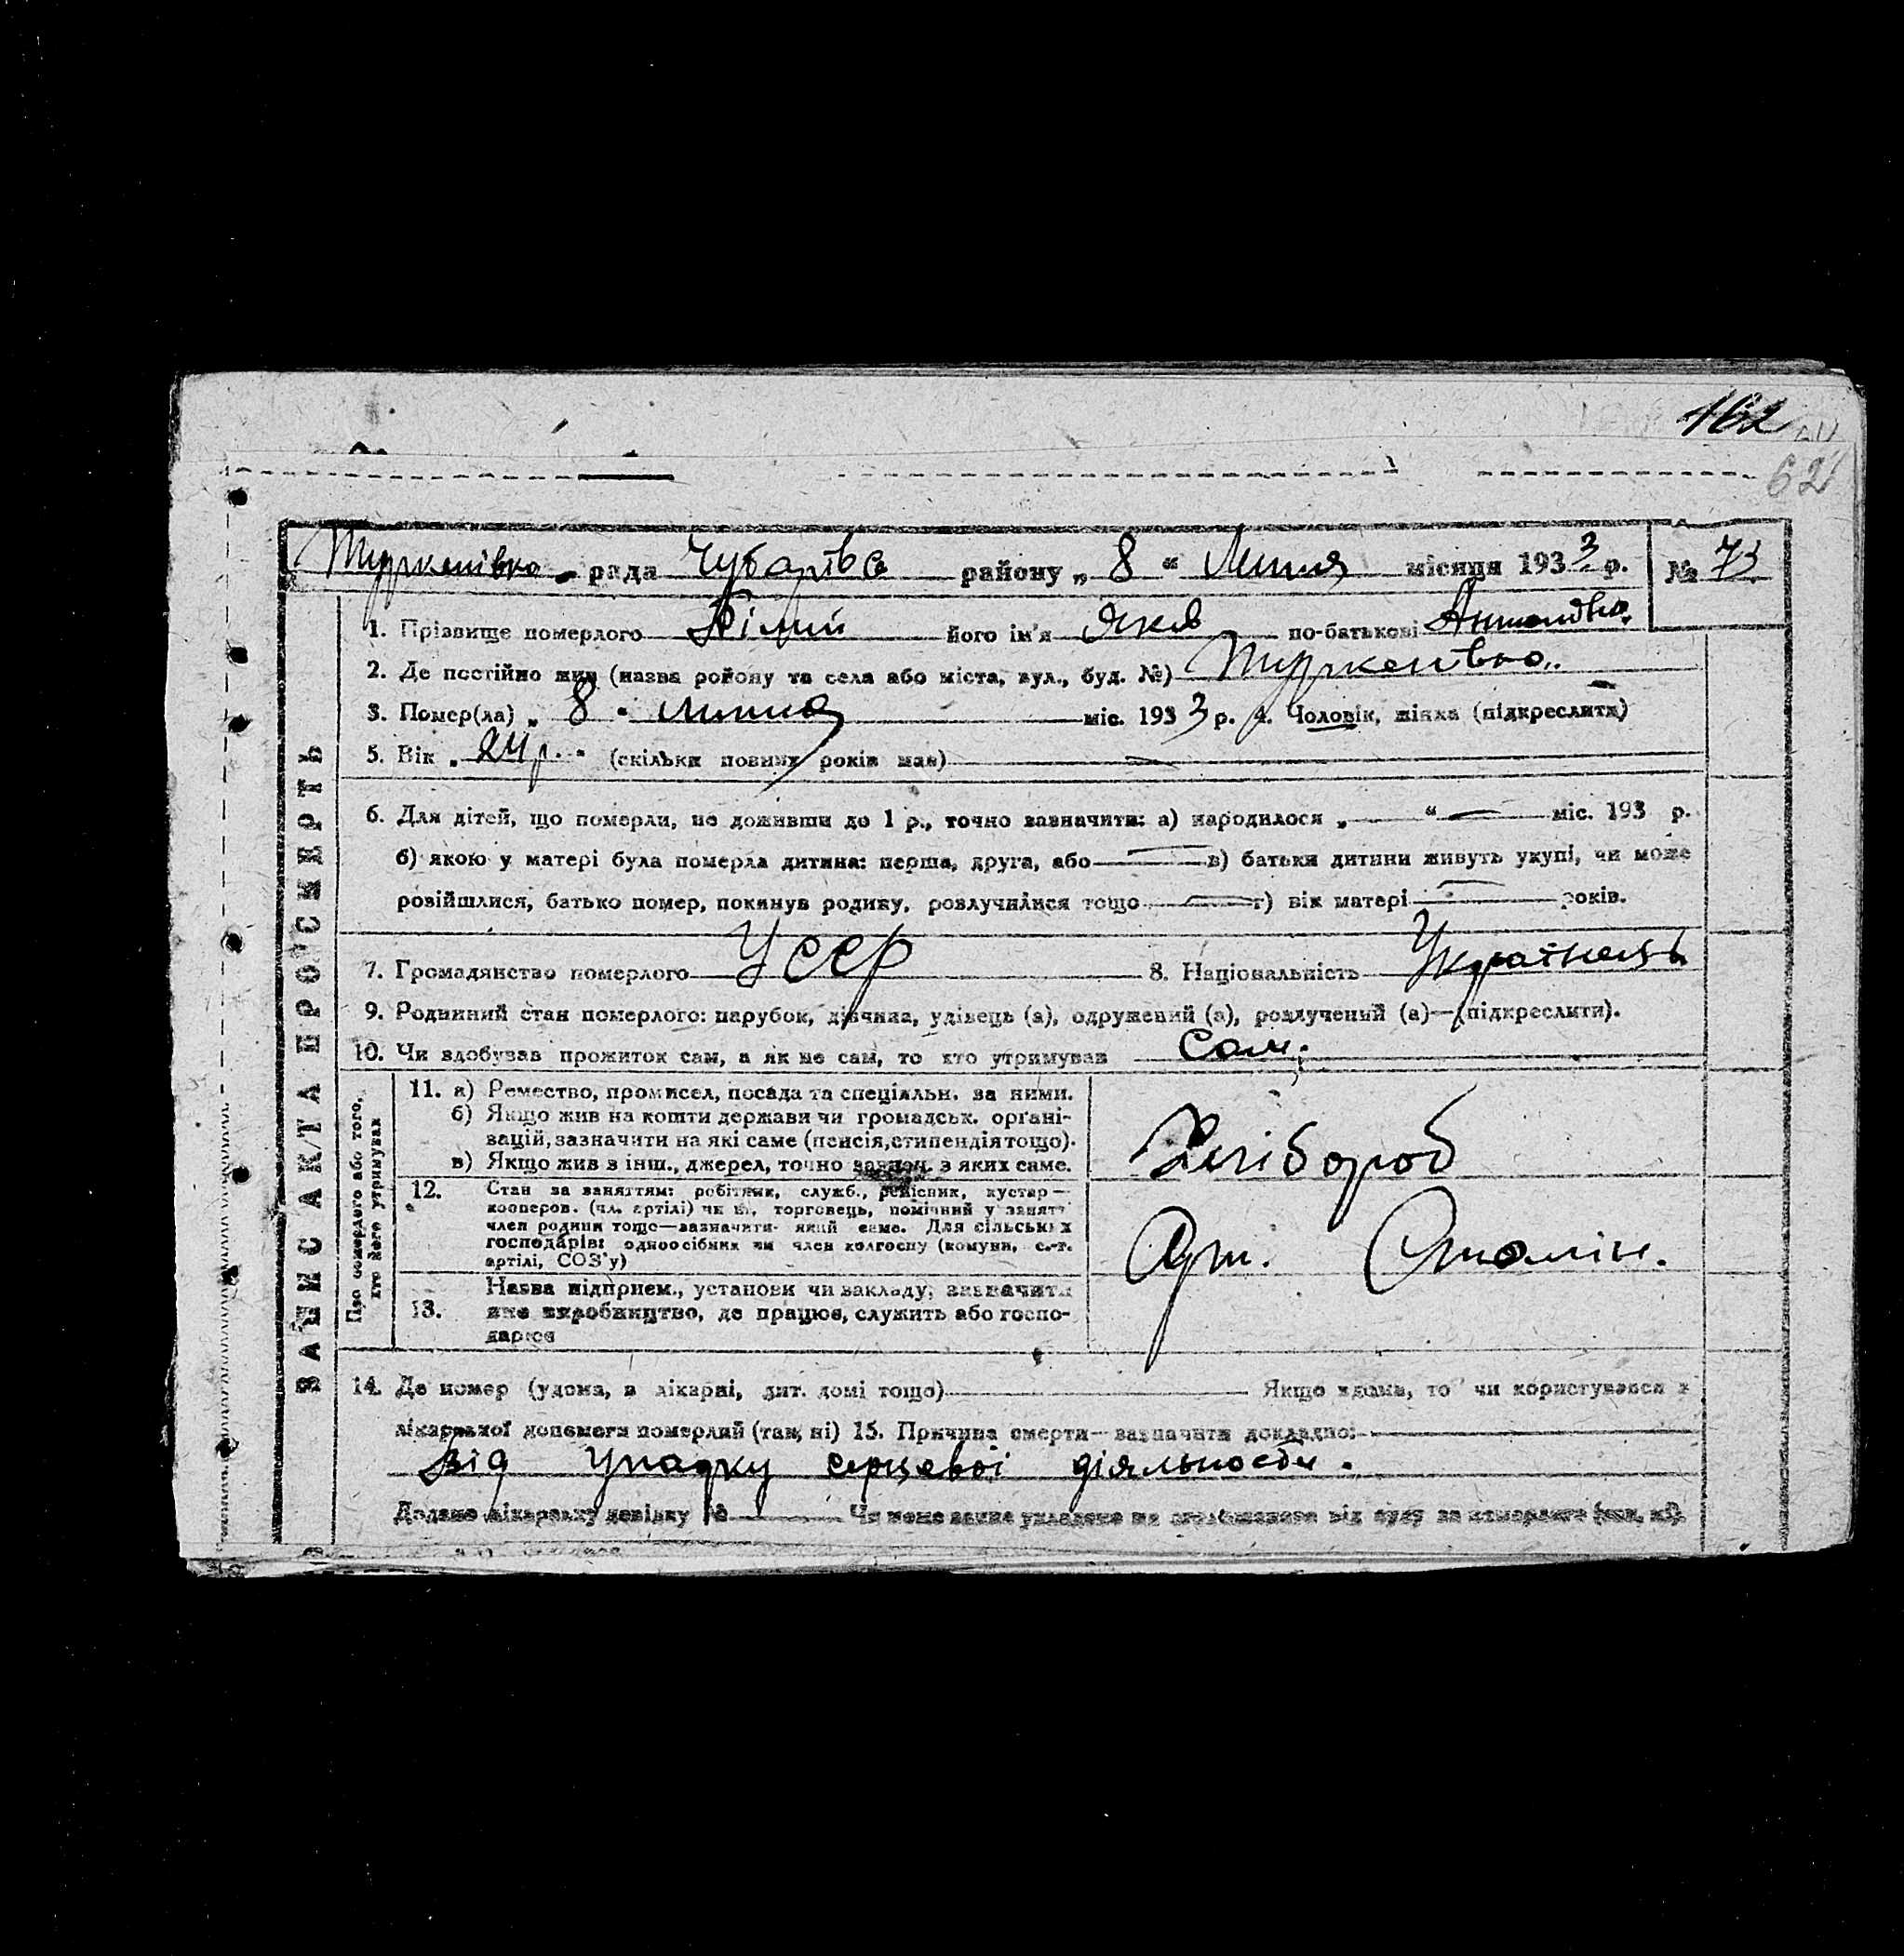 162
62
Туркенівка рада Чубарівс району „ 8 “ Липня місяця 1933 р. № 73
1. Прізвище померлого Білий його ім'я Яків по-батькові
2. Де постійно жив (назва району та села або міста, вул., буд. №) Туркенівка.
3. Помер(ла) „ 8 “ липня міс. 1933 р. 4. Чоловік, жінка (підкреслити)
5. Вік „ 24 р. “ (скільки повних років мав)
6. Для дітей, що померли, не доживши до 1 р., точно зазначити: а) народилося „ “ міс. 193 р.
б) якою у матері була померла дитина: перша, друга, або в) батьки дитини живуть укупі, чи може
розійшлися, батько помер, покинув родину, розлучилися тощо г) вік матері років.
7. Громадянство померлого УССР 8. Національність Українець
9. Родинний стан померлого: парубок, дівчина, удівець (а), одружений (а), розлучений (а)—(підкреслити).
10. Чи здобував прожиток сам, а як не сам, то хто утримував Сам;
ЗАПИС АКТА ПРО СМЕРТЬ
Про померлого або того,
хто його утримував
11. а) Ремество, промисел, посада та спеціяльн. за ними.
б) Якщо жив на кошти держави чи громадськ. орґані-
зацій, зазначити на які саме (пенсія, стипендія тощо).
в) Якщо жив з інш., джерел, точно зазнач. з яких саме.
Хлібороб
12. Стан за заняттям: робітник, служб., ремісник, кустар—
кооперов. (чл. артілі) чи ні, торговець, помічний у занятт
член родини тощо—зазначити який саме. Для сільських
господарів: одноосібник чи член колгоспу (комуни, с.-г.
артілі, СОЗ'у)
Арт. Сталін.
13. Назва підприєм., установи чи закладу; зазначити
яке виробництво, де працює, служить або госпо-
дарює
14. Де помер (удома, в лікарні, дит. домі тощо) Якщо вдома, то чи користувався з
лікарської допомоги померлий (так, ні) 15. Причина смерти—зазначити докладно:
від упадку серцевої діяльности.
Додано лікарську довідку №